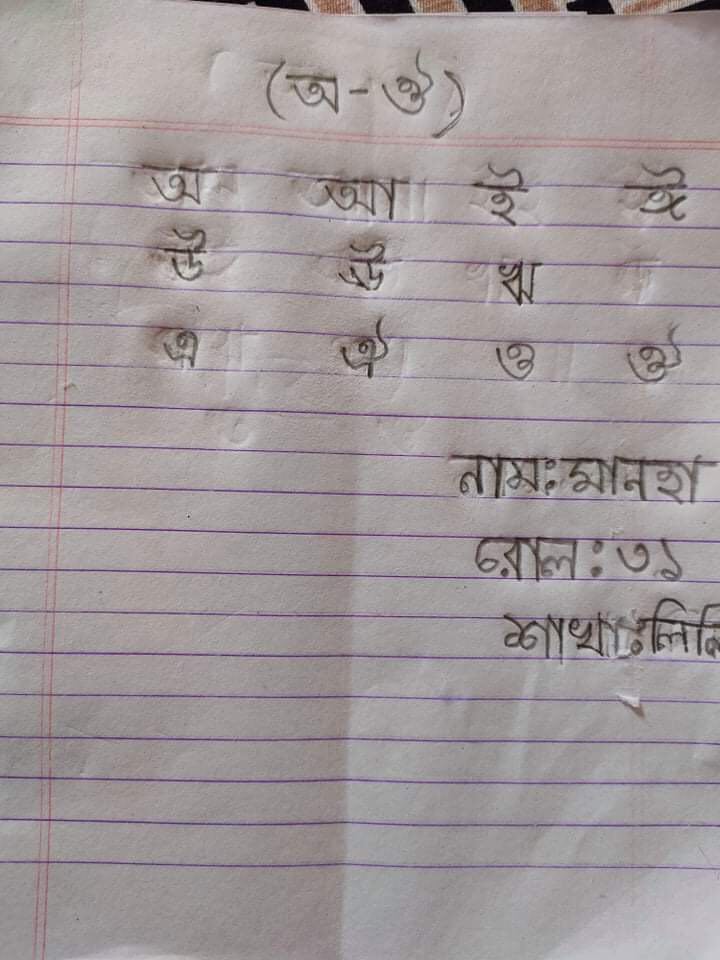 (অ-ঔ)
অ আ ই ঈ
উ ঊ ঋ
এ ঐ ও ঔ
নাম: মানহা
রোল: ৩১
শাখা: লিলি